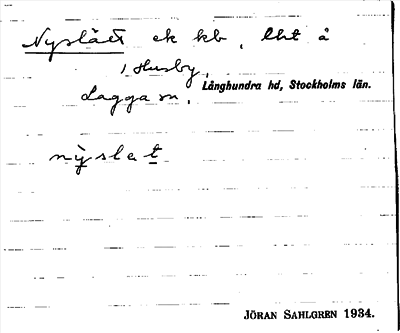 Nyslätt ek kb, lht å
1 Husby,
Lagga sn, Långhundra hd, Stockholms län.
nỳslet
JÖRAN SAHLGREN 1934.